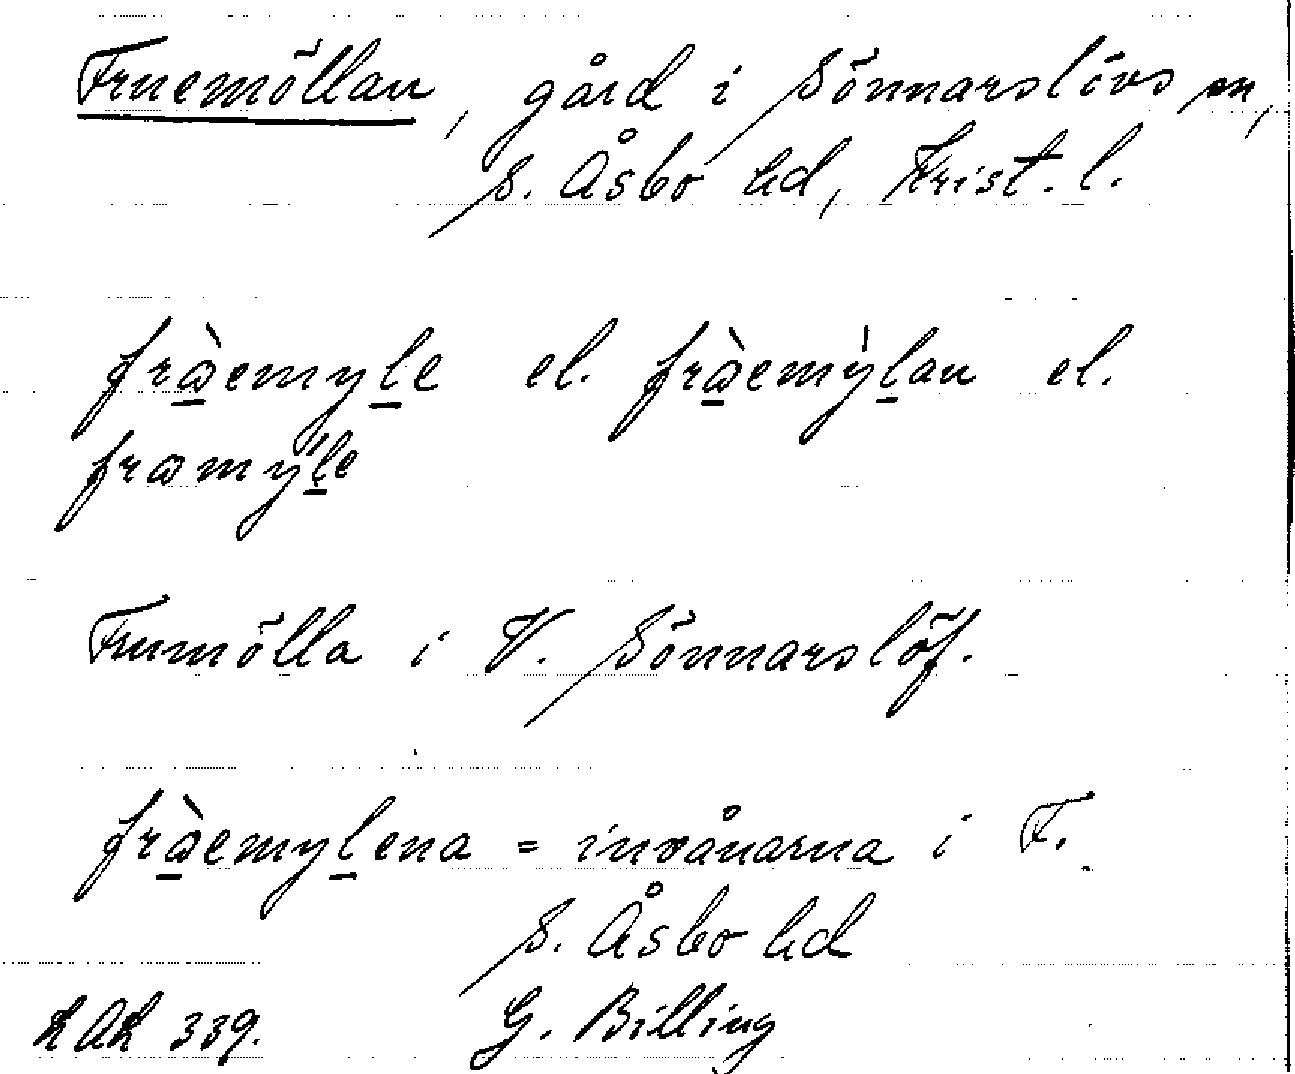 Fruemöllan, gård i Sönnarslövs sn,
S. Åsbo hd, Krist. l.
fràemyle el. fràemýlan el.
framy̋le
Frumölla i V. Sönnarslöf.
fràemylena = invånarna i F.
S. Åsbo hd
LAL 339. G. Billing